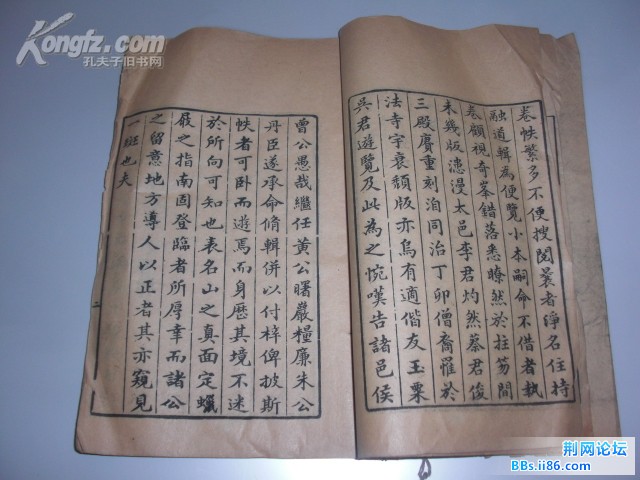 Kongfz.com
孔夫子旧书网
卷帙繁多不便搜閱曩者淨名住持
融道輯為便覽小本嗣命不借者執
卷顧視奇峯錯落悉瞭然於拄笏間
未幾版漶漫太邑李君灼然蔡君俊
三殿賡重刻洎同治丁卯僧裔罹於
法寺宇衰頽版亦烏有適偕友玉粟
吳君遊覽及此為之惋嘆告諸邑侯
曾公愚哉繼任黃公曙嚴糧廉朱公
丹臣遂承命脩輯併以付梓俾披斯
帙者可臥而遊焉而身歷其境不迷
於所向可知也表名山之真面定蠟
屐之指南固登臨者所厚幸而諸公
之留意地方導人以正者其亦窺見
一斑也夫
荆网论坛
BBs.ii86.com